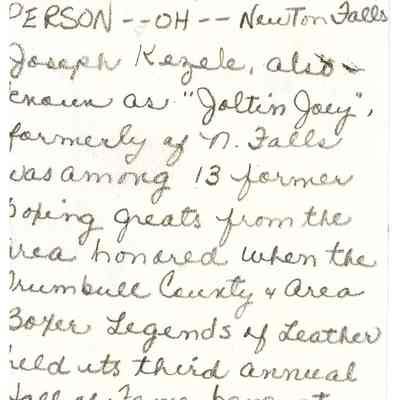 PERSON -- OH -- Newton Falls
Joseph Kezele, also
known as "Joltin Joey",
formerly of N. Falls
was among 13 former
boxing greats from the
area honored when the
Trumbull County & Area
Boxer Legends of Leather
held its third annual
Hall of Fame